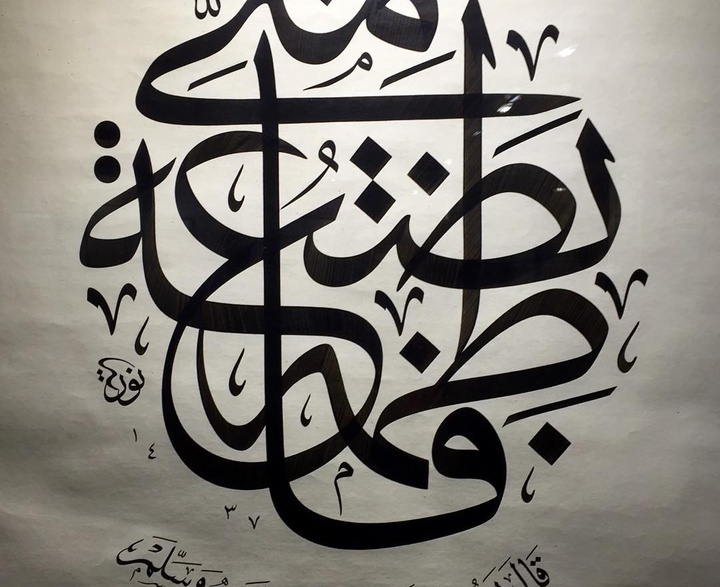 فاطمة بضعة مني
نورية
١٤٣٧
قال
وسلم